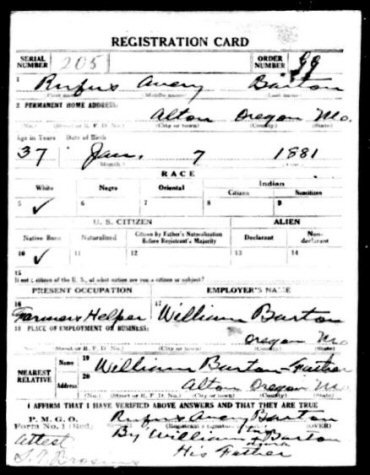 REGISTRATION CARD
SERIAL NUMBER 205 ORDER NUMBER
1 Rufus Avery Barton
First name Middle name Last name
2 PERMANENT HOME ADDRESS:
Alton Oregon Mo.
(No.) (Street or R. F. D. No.) (City or town) (County) (State)
Age in Years Date of Birth
37 Jan. 7 1881
RACE
White Negro Oriental Indian
Citizen Noncitizen
5 ✓ 6 7 8 9
U. S. CITIZEN ALIEN
Native Born Naturalized Citizen by Father's Naturalization Before Registrant's Majority Declarant Non-declarant
10 ✓ 11 12 13 14
15
If not a citizen of the U. S., of what nation are you a citizen or subject?
PRESENT OCCUPATION EMPLOYER'S NAME
16 Farmers Helper 17 William Barton
18 PLACE OF EMPLOYMENT OR BUSINESS:
Oregon Mo
(No.) (Street or R. F. D. No.) (City or town) (County) (State)
NEAREST RELATIVE Name 19 William Barton - Father
Address 20 Alton Oregon Mo.
(No.) (Street or R. F. D. No.) (City or town) (County) (State)
I AFFIRM THAT I HAVE VERIFIED ABOVE ANSWERS AND THAT THEY ARE TRUE
P. M. G. O.
Form No. 1 (Red) Rufus Barton (OVER)
Attest By William Barton
His Father